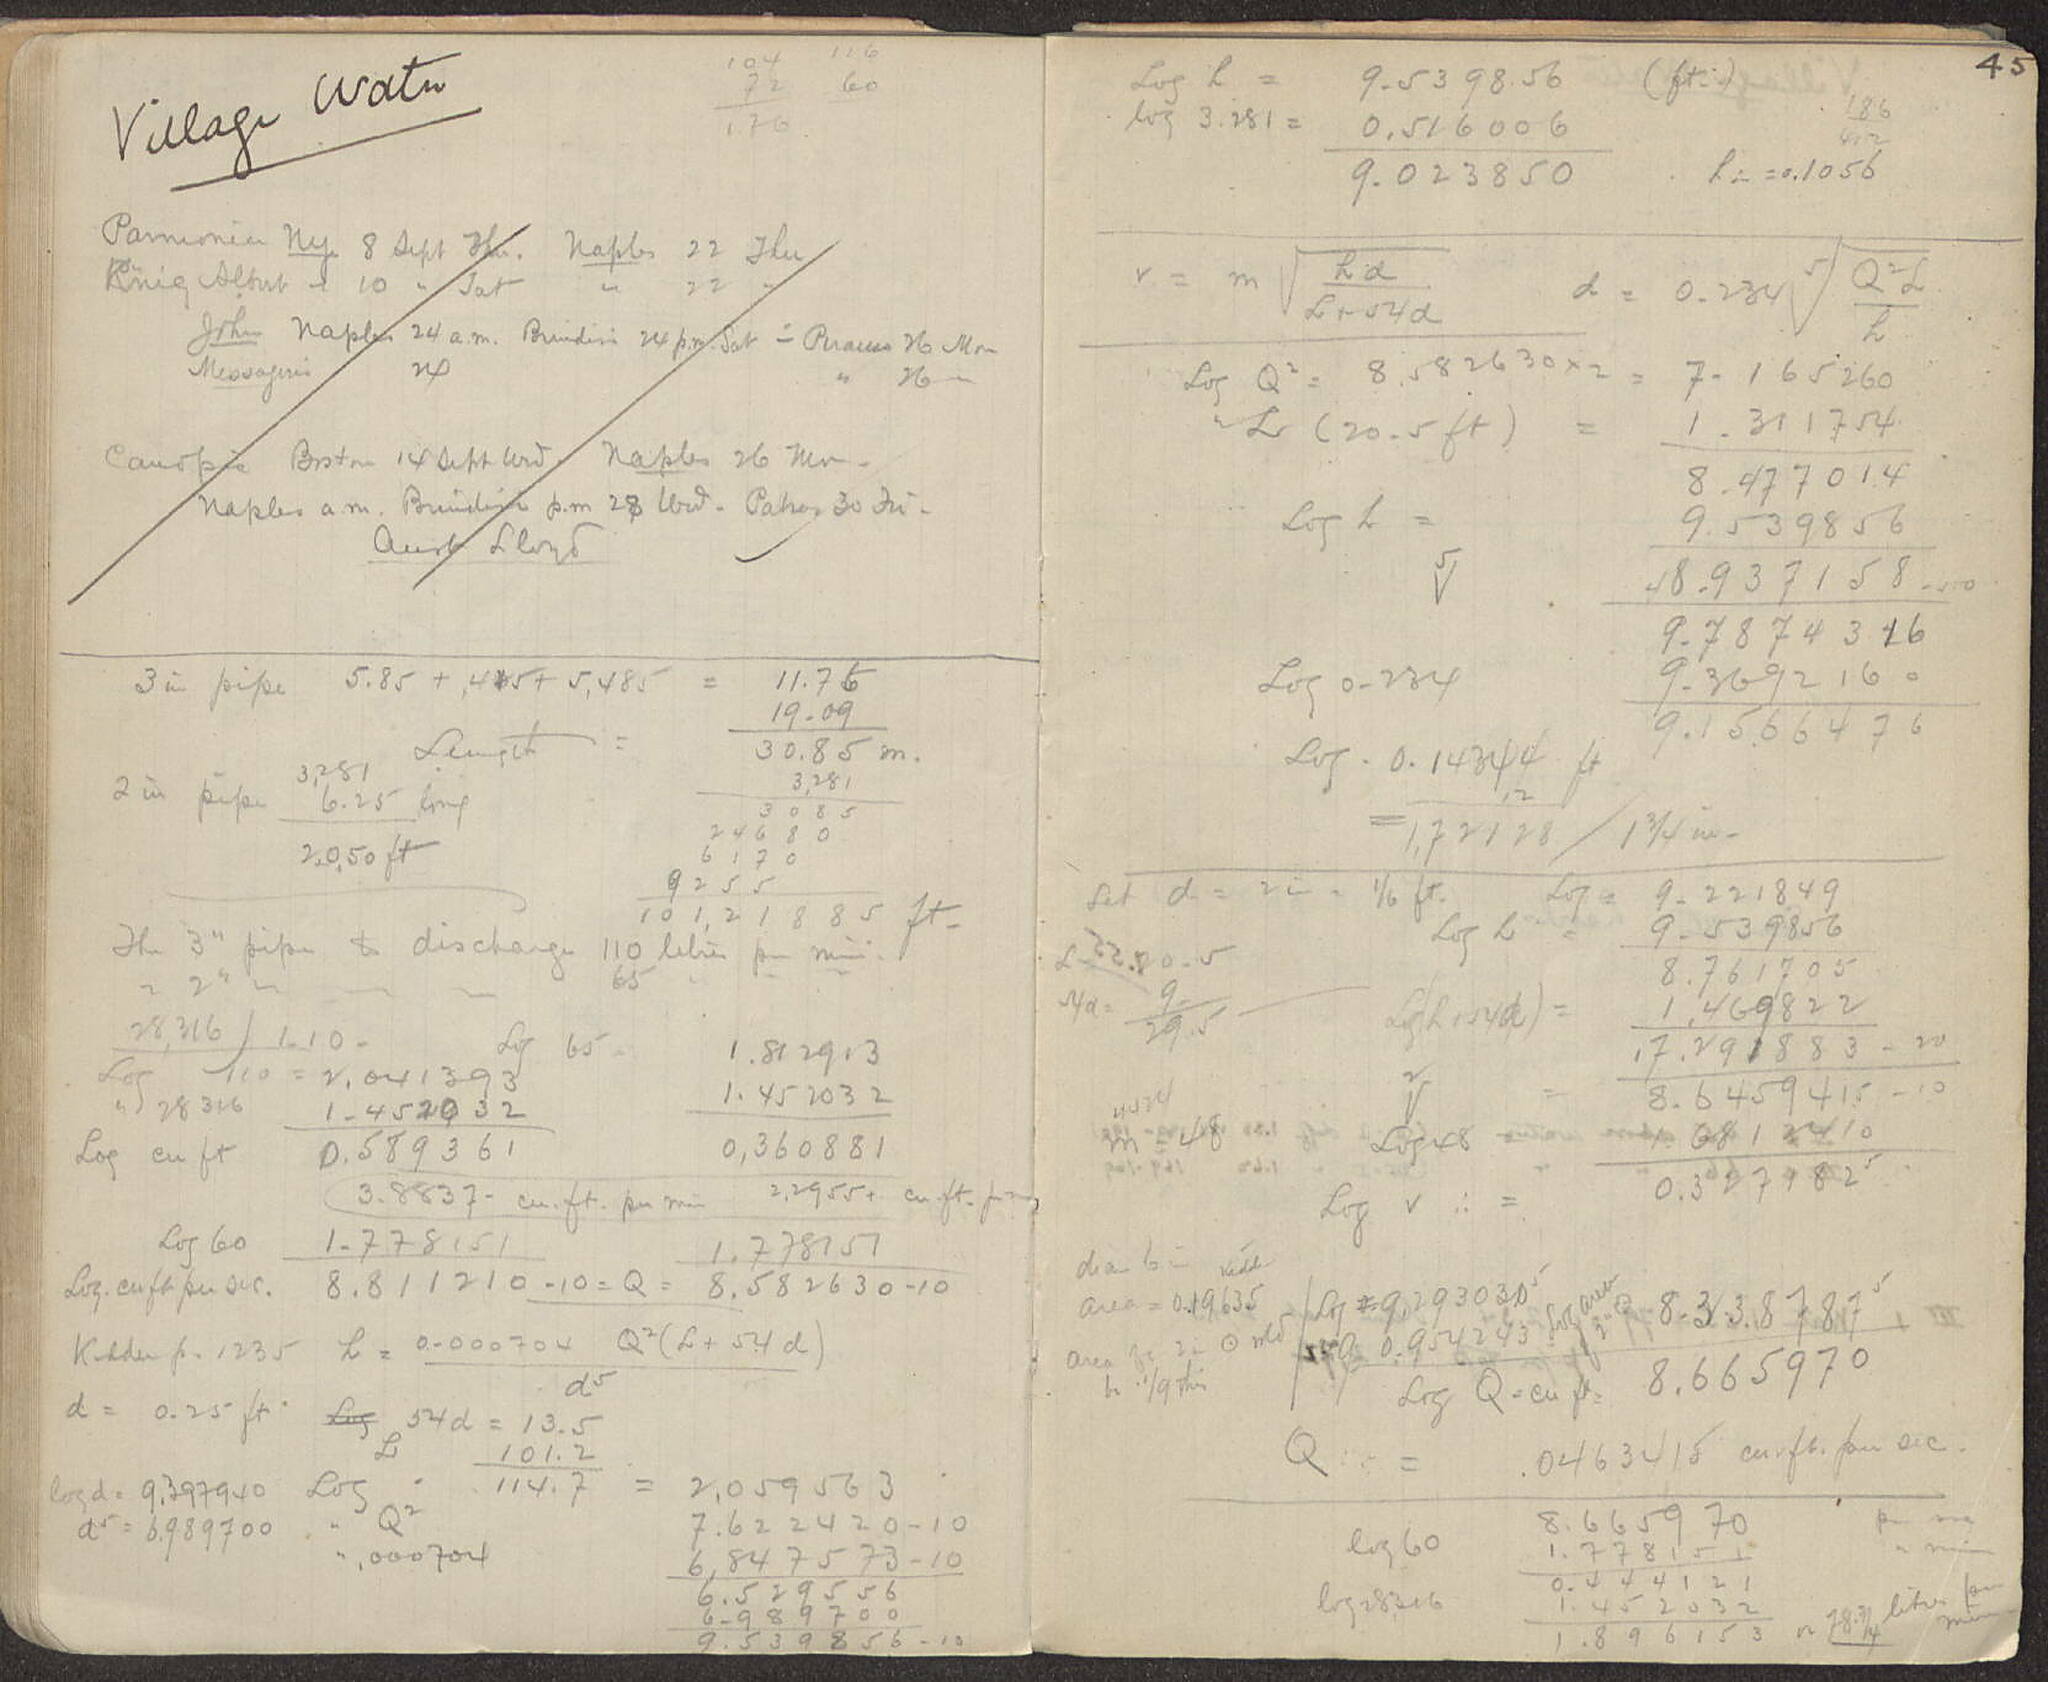 Village Water
104 116
72 60
176
Pannonia N.Y. 8 Sept Thu. Naples 22 Thu
König Albert " 10 " Sat " 22 "
John Naples 24 a.m. Brindisi 24 p.m. Sat = Piraeus 26 Mon
Messageries 24 " 26 "
Canopic Boston 14 Sept Wed. Naples 26 Mon -
Naples a.m. Brindisi p.m 28 Wed - Patras 30 Fri -
Aust Lloyd
3 in pipe 5.85 + .425 + 5.485 = 11.76
19.09
Length = 30.85 m.
3,281
3085
24680
6170
9255
101,21885 ft-
3,281
2 in pipe 6.25 long
20,50 ft
The 3" pipe to discharge 110 litres per min.
" 2" " 65 " " "
28,316 / 110 - Log 65 - 1.812913
Log 110 = 2.041393
" 28316 1.452032 1.452032
Log cu ft 0.589361 0,360881
3.8837- cu. ft. per min 2,2955+ cu. ft. per min
Log 60 1.778151 1.778151
Log. cu ft per sec. 8.811210 -10 = Q = 8.582630 -10
Kidder p. 1235 h = 0.000704 Q² (L + 54d)
d⁵
d = 0.25 ft. Log 54d = 13.5
L 101.2
log d = 9.397940 Log " 114.7 = 2,059563
d⁵ = 6.989700 " Q² 7.622420-10
" .000704 6,847573-10
6.529556
6-989700
9.539856-10
45
Log h = 9-539856 (ft.)
log 3.281 = 0.516006
9.023850 h = 0.1056
186
v = m √ hd / L+54d d = 0.234 ⁵√ Q²L / h
Log Q² = 8.582630 × 2 = 7-165260
" L (20.5 ft) = 1.311754
8.477014
Log h = 9.539856
⁵√ 48.937158-50
9.7874316
Log 0.234 9.3692160
9.1566476
Log. 0.14344 ft
12
= 1,72128 / 1 3/4 in-
Let d = 2 in = 1/6 ft. Log = 9.221849
Log h = 9-539856
8.761705
L 20.5
54d = 9
29.5
Log (L+54d) = 1.469822
17.291883-20
²√ = 8.6459415-10
m = 48 Log 48 = 1.6812410
Log v ∴ = 0.3271825
area = 0.19635 Kidder Log = 9.2930305 Log area 8-3387875
area of 2 in ⊙ wld 0.954243
be 1/9 this
Log Q = cu ft = 8.665970
Q ∴ = .0463415 cu. ft. per sec.
8.665970 per sec
log 60 1.778151 " min
0.444121
log 28316 1.452032
1.896153 or 78 3/4 litres per min